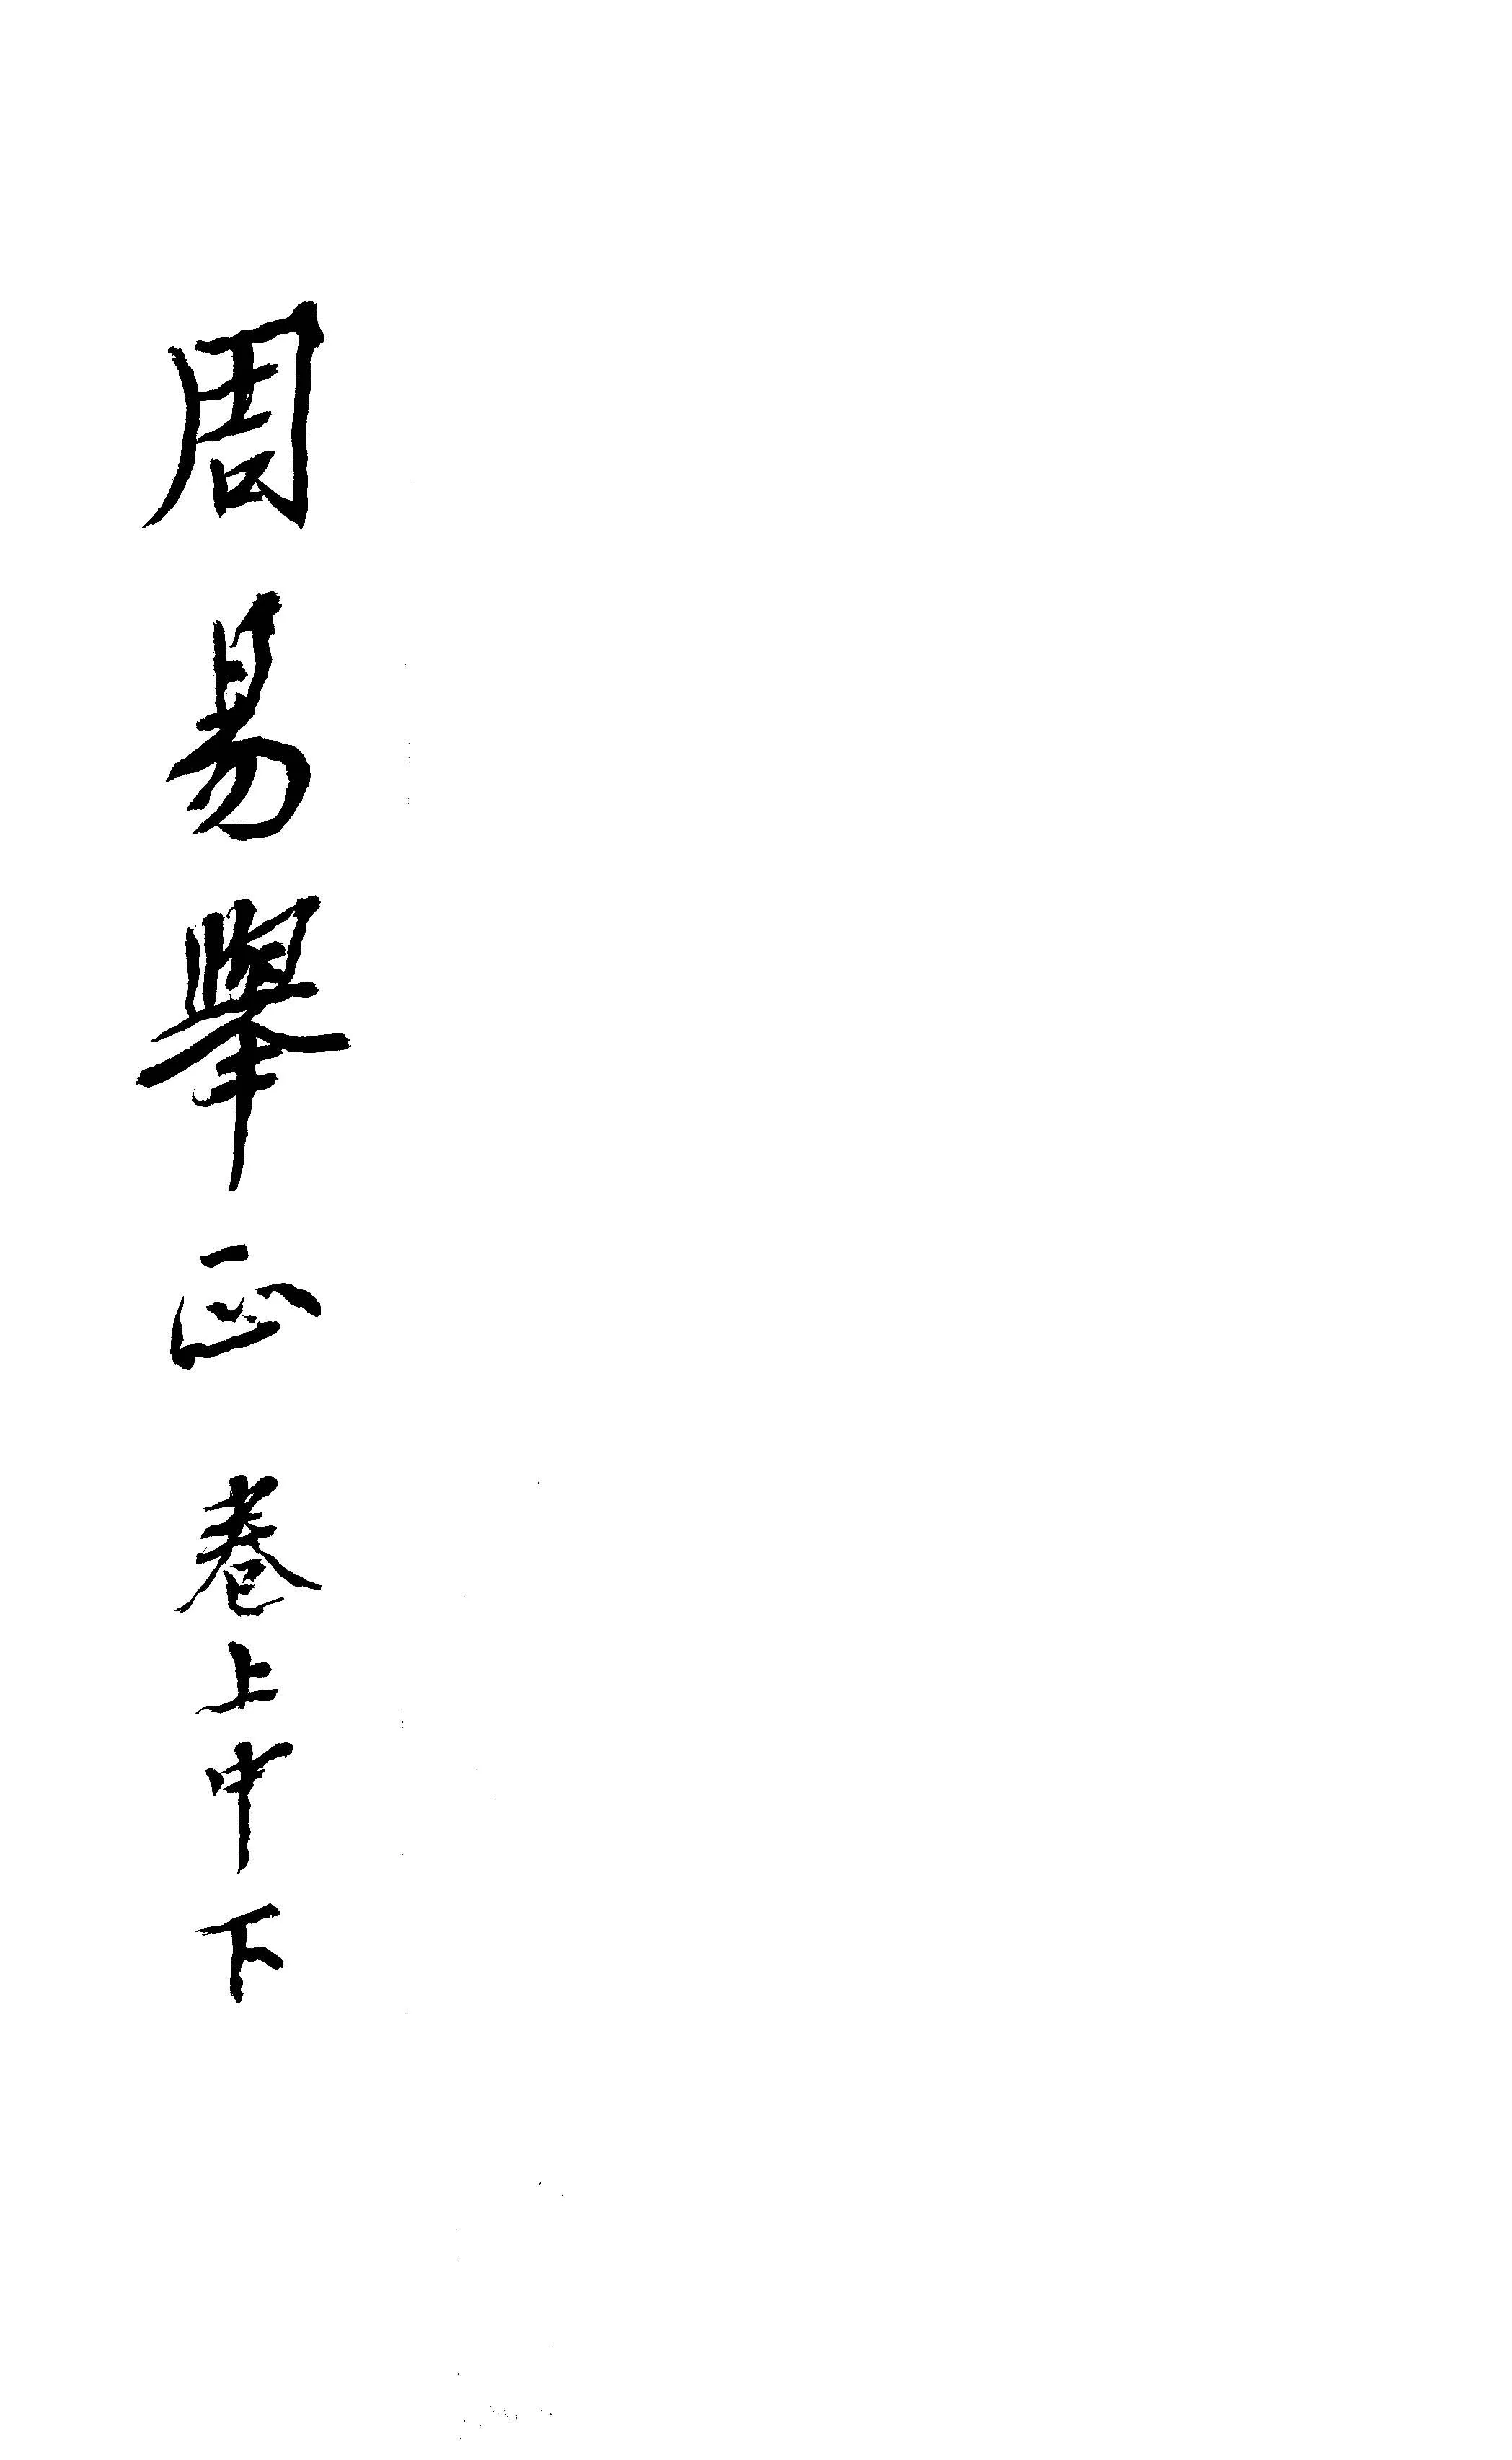 周易舉正 卷上中下